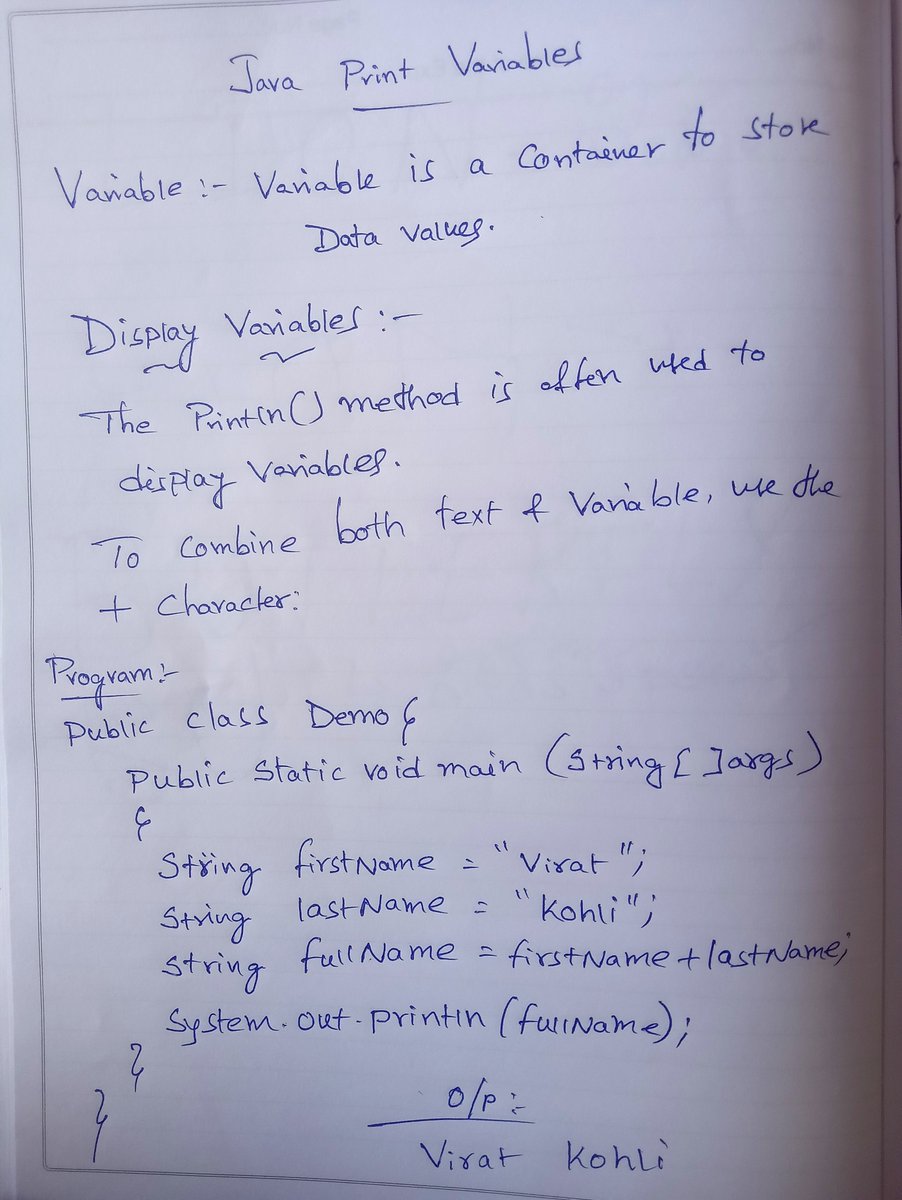 Java Print Variables
Variable :- Variable is a Container to store
Data values.
Display Variables :-
The Println() method is often used to
display Variables.
To Combine both text & Variable, use the
+ Character:
Program:-
Public class Demo {
Public Static void main (String [ ] args)
{
String firstName = "Virat";
String lastName = "Kohli";
String fullName = firstName + lastName;
System.out.println (fullName);
}
}
O/P :-
Virat Kohli